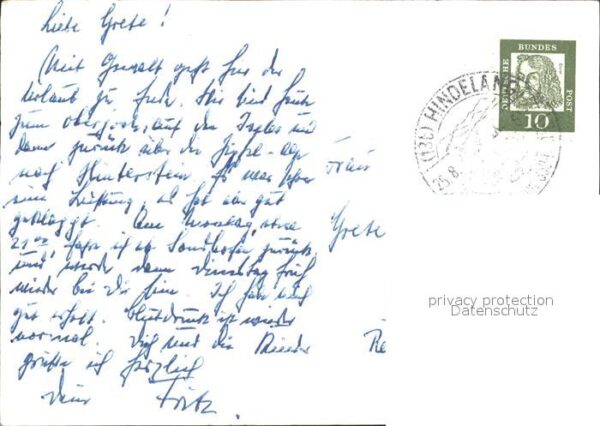 Liebe Grete!
Mit Gewalt geht hier der
Urlaub zu Ende. Wir sind heute
zum Oberjoch, auf den Iseler und
dann zurück über die Zipfel-Alp
nach Hinterstein. Es war schon
eine Leistung, es hat aber gut
geklappt. Am Montag, etwa
21 00, fahre ich ab Sonthofen zurück
und werde dann Dienstag früh
wieder bei Dir sein. Ich habe mich
gut erholt. Blutdruck ist wieder
normal. Dich und die Kinder
grüße ich herzlich
Dein Fritz.
Frau
Grete
Re
DEUTSCHE BUNDESPOST
10
HINDELANG
25.8.
privacy protection
Datenschutz